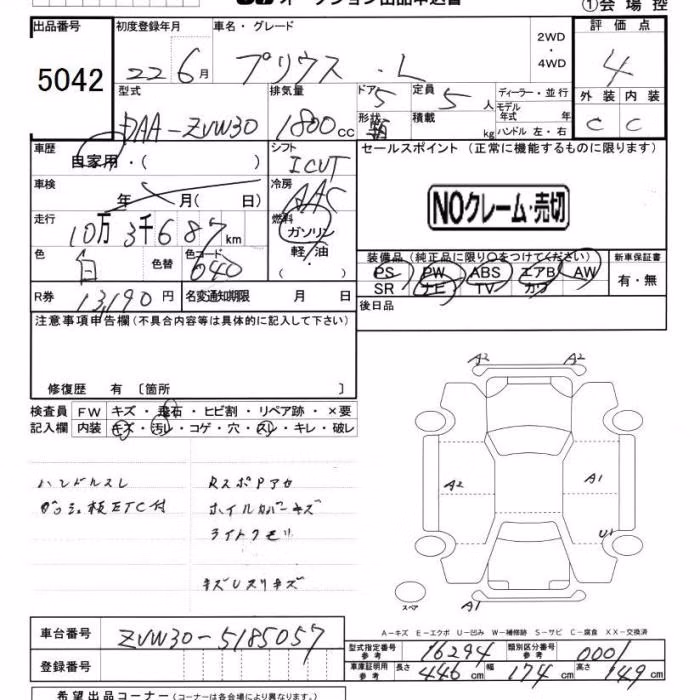 オークション出品申込書
①会場控
出品番号 5042
初度登録年月 22 6月
車名・グレード プリウス ・ L
2WD ・ 4WD
評価点 4
外装 C 内装 C
型式 DAA-ZVW30
排気量 1800cc
ドア 5
形状 箱
定員 5人
積載 kg
ディーラー・並行
モデル年式 年
ハンドル 左・右
車歴 自家用・( )
シフト ICVT
セールスポイント (正常に機能するものに限ります)
NOクレーム・売切
車検 年 月( 日)
冷房 AAC
走行 10万3千687km
燃料 ガソリン 軽油
色 白 色替 色コード 040
装備品 (純正品に限り○をつけてください) 新車保証書
PS PW ABS エアB AW 有・無
SR ナビ TV カワ
R券 13,190円 名変通知期限 月 日
後日品
注意事項申告欄(不具合内容等は具体的に記入して下さい)
修復歴 有 〔箇所 〕
検査員記入欄
FW キズ・飛石・ヒビ割・リペア跡・×要
内装 キズ・汚レ・コゲ・穴・スレ・キレ・破レ
A2 A2
A2 A1
U1
A2
スペア
ハンドルスレ
ETC付
ホイルカバーキズ
ライトクモリ
A-キズ E-エクボ U-凹み W-補修跡 S-サビ C-腐食 XX-交換済
車台番号 ZVW30-5185057
登録番号
型式指定番号 参考 16294 類別区分番号 参考 0001
車庫証明用 参考 長さ 446cm 幅 174cm 高さ 149cm
希望出品コーナー(コーナーは各会場により異なります)